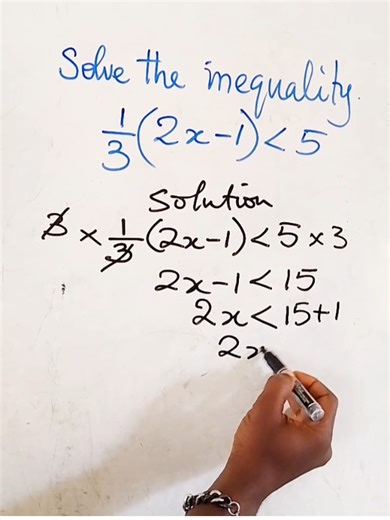 Solve the inequality.
1/3(2x-1)<5
Solution
3 × 1/3(2x-1)<5×3
2x-1<15
2x<15+1
2x